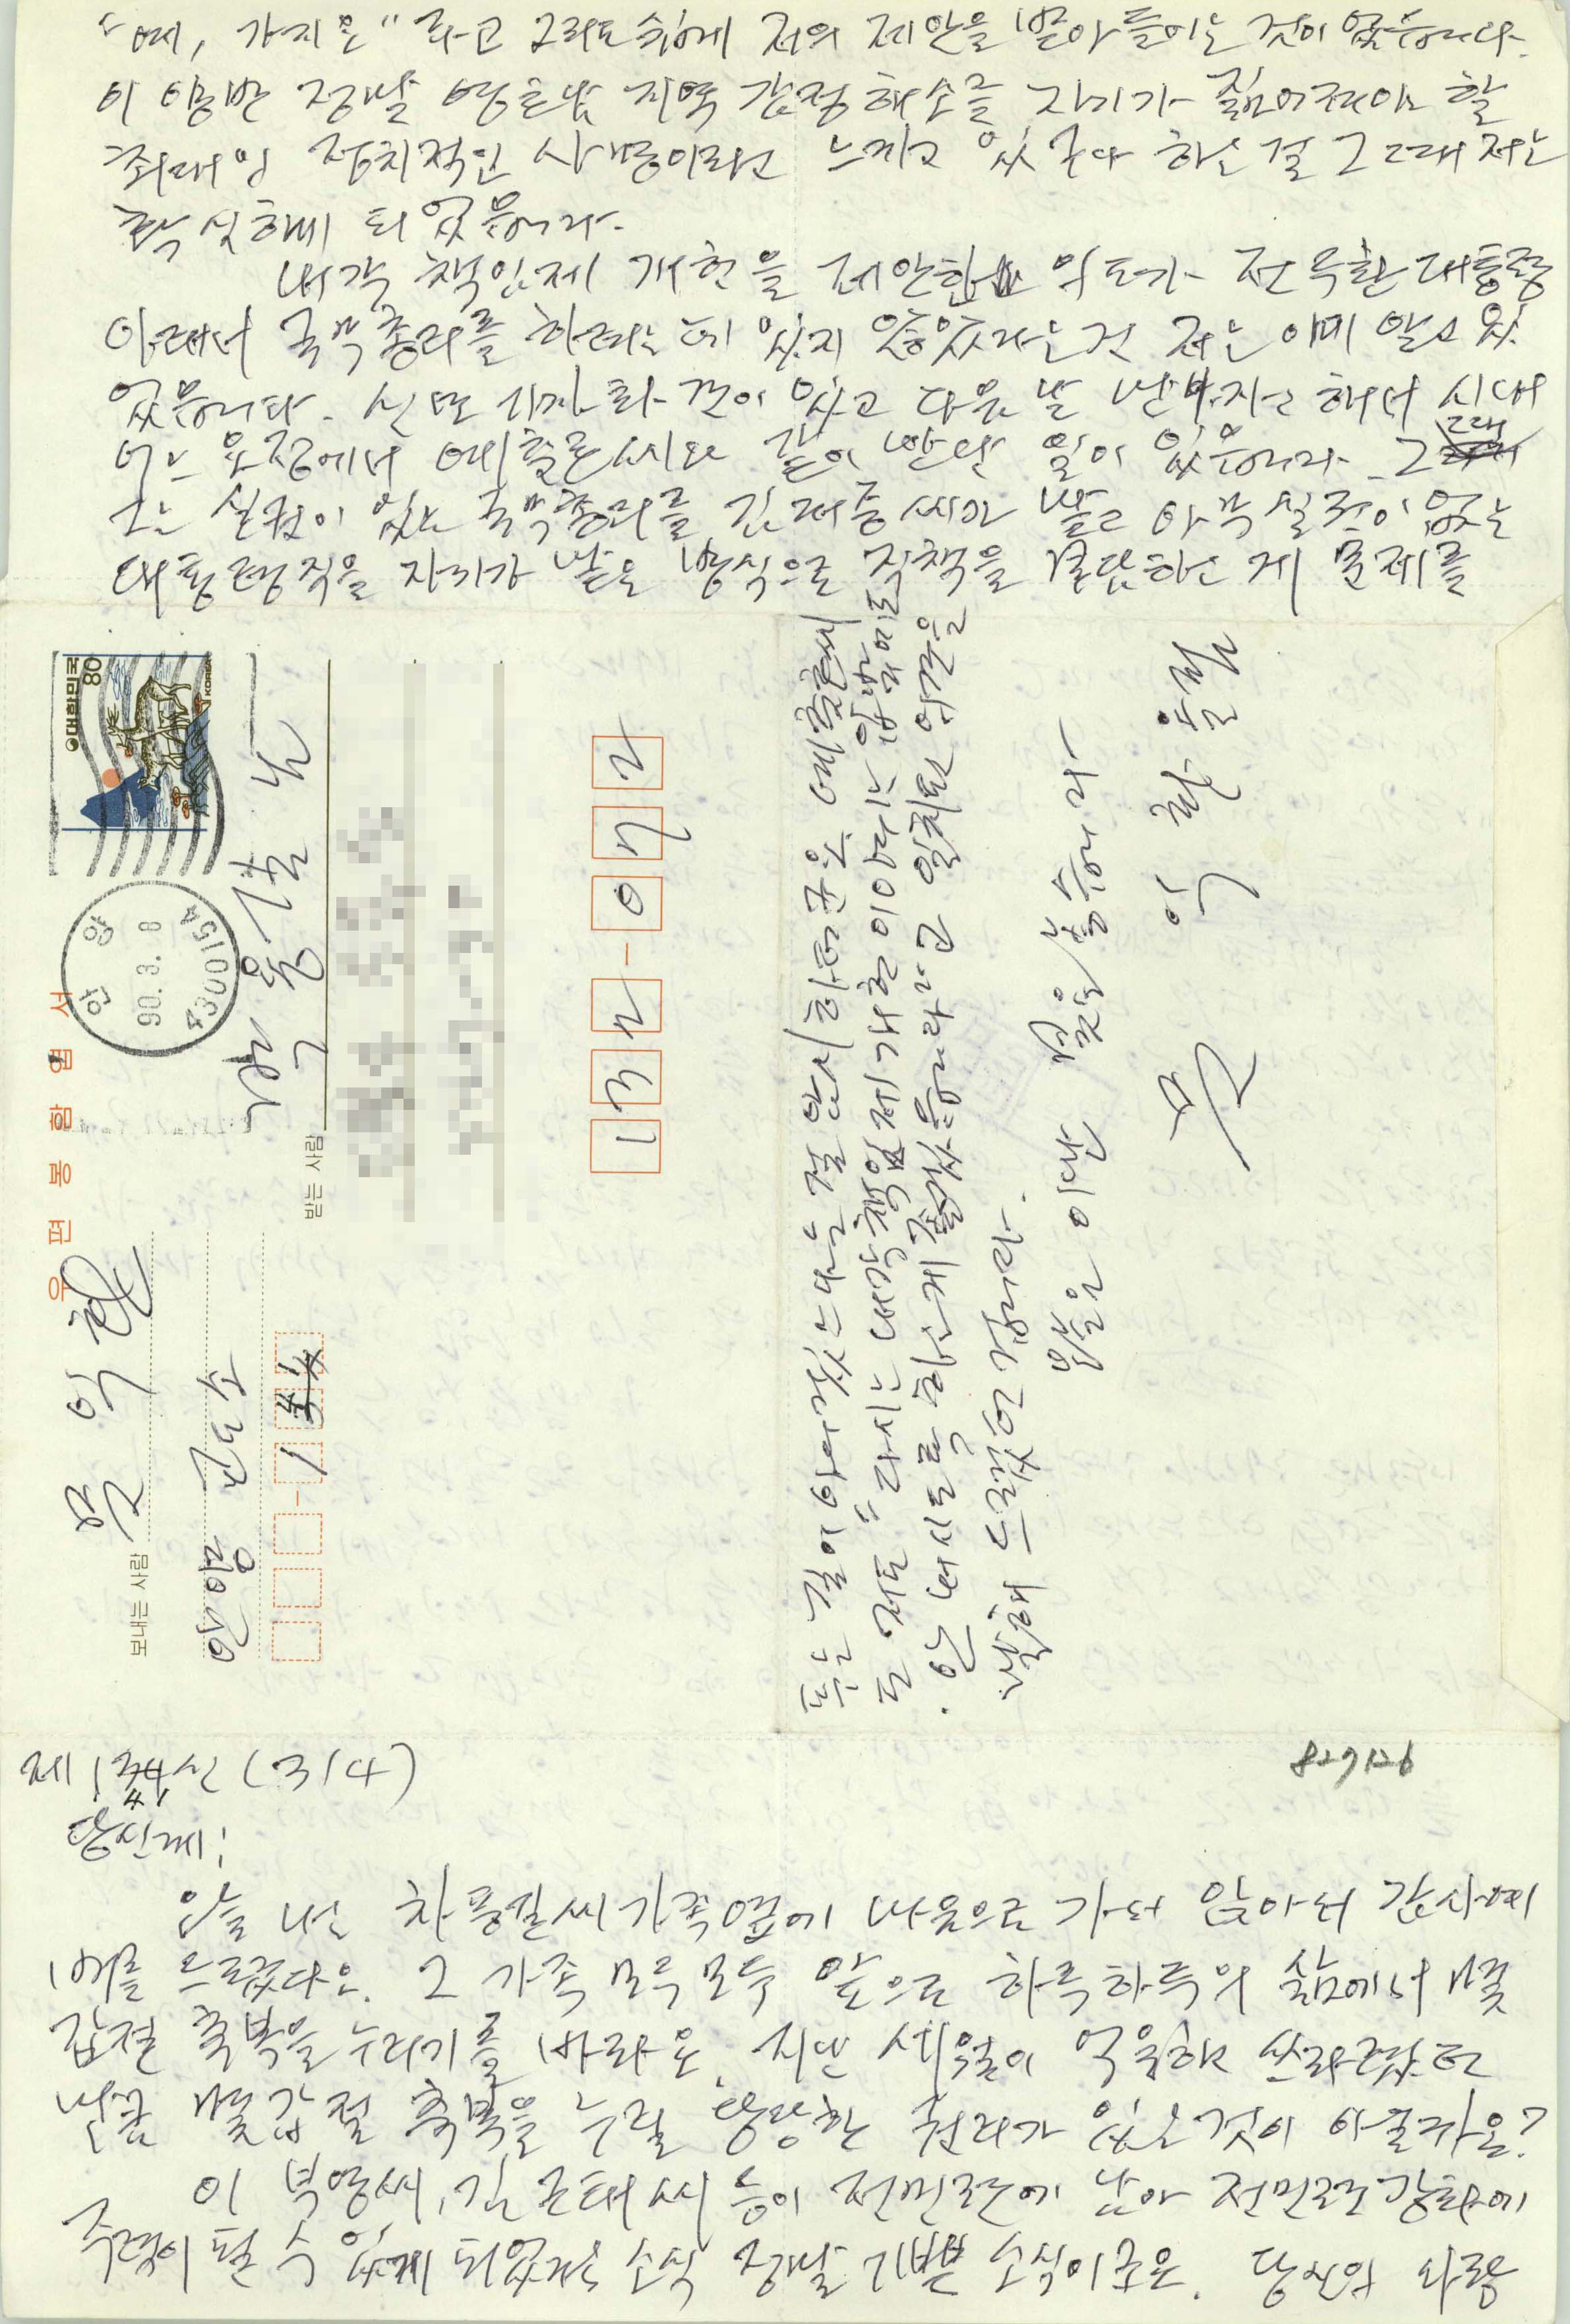 "예, 가지요" 하고 그러도 쉽게 저의 제안을 받아들이는 것이 었습니다.
이 이중반 정말 영호남 지역 감정 해소를 자기가 짊어져야 할
최대의 정치적인 사명이라고 느끼고 있구나 하는 걸 그 때 저는
확실하게 되었습니다.
내각 책임제 개헌을 제안한 의도가 전두환 대통령
아래서 국무총리를 하려는 데 있지 않았다는 것 저는 이미 알고 있
었습니다. 신민 기자회견이 있고 다음 날 만나자고 해서 시내
어느 음식점에서 예춘호씨와 같이 만난 일이 있습니다. 그때
그는 실권이 있는 국무총리를 김대중씨가 맡고 아무 실권이 없는
대통령직을 자기가 맡는 방식으로 직책을 분담하는 게 문제를
푸는 길이 아니겠는가는 걸 암시하더군요. 예춘호씨
도 저도 "당시는 내각책임제 개헌이야기는 안 받아들
인 내시도록 하는게 좋겠습니다"라고 일치된 의견을
말해 드렸던 겁니다.
오늘은 이만 펜을 놓습니다
문 익 환 올림
대한민국
80
KOREA
안양
90. 3. 8
4300154
우편봉함엽서
보내는 사람
문 익 환
안양 교도소
1
받는 사람
박 용 길 장 로
132-072
제141신 (3/4)
827126
당신께;
오늘 나는 차풍길씨 가족옆에 마음으로 가서 앉아서 감사예
배를 드렸다오. 그 가족 모두 모두 앞으로 하루하루의 삶에서 몇
갑절 축복을 누리기를 바라오. 지난 세월이 억울하고 쓰라렸던
만큼 몇갑절 축복을 누릴 당당한 권리가 있는 것이 아닐까요?
이 부영씨, 김 근태씨 등이 전민련에 남아 전민련 강화에
주력이 될 수 있게 되었다는 소식 정말 기쁜 소식이군요. 당신의 사랑